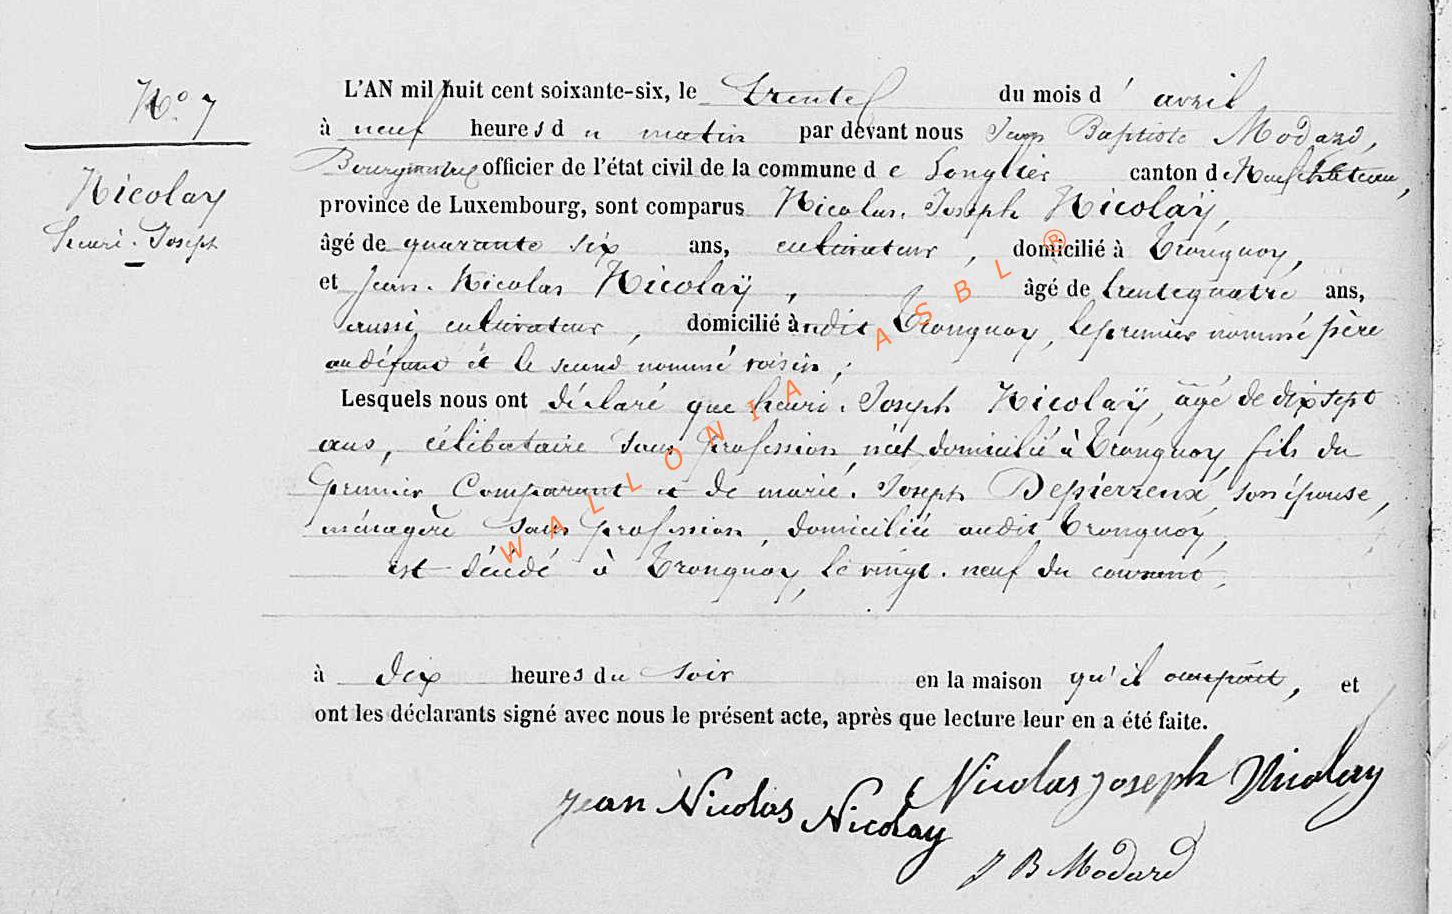 N.o 7
Nicolay
Henri. Joseph
L'AN mil huit cent soixante-six, le trente du mois d' avril
à neuf heures du matin par devant nous Jean Baptiste Modard,
Bourgmestre officier de l'état civil de la commune de Longlier canton de Neufchâteau,
province de Luxembourg, sont comparus Nicolas. Joseph Nicolaÿ,
âgé de quarante six ans, cultivateur, domicilié à Tronquoy,
et Jean. Nicolas Nicolaÿ, âgé de trentequatre ans,
aussi cultivateur, domicilié àudit Tronquoy, le premier nommé père
au défunt et le second nommé voisin,
Lesquels nous ont déclaré que henri. Joseph Nicolaÿ, âgé de dix sept
ans, célibataire sans profession, né et domicilié à Tronquoy, fils du
premier Comparant et de marie. Joseph Depierreux, son épouse,
ménagère sans profession, domiciliée audit Tronquoy,
est décédé à Tronquoy, le vingt. neuf du courant,
à dix heures du soir en la maison qu'il occupoit, et
ont les déclarants signé avec nous le présent acte, après que lecture leur en a été faite.
Nicolas joseph Nicolay
jean Nicolas Nicolay
J B Modard
WALLONIA ASBL ®